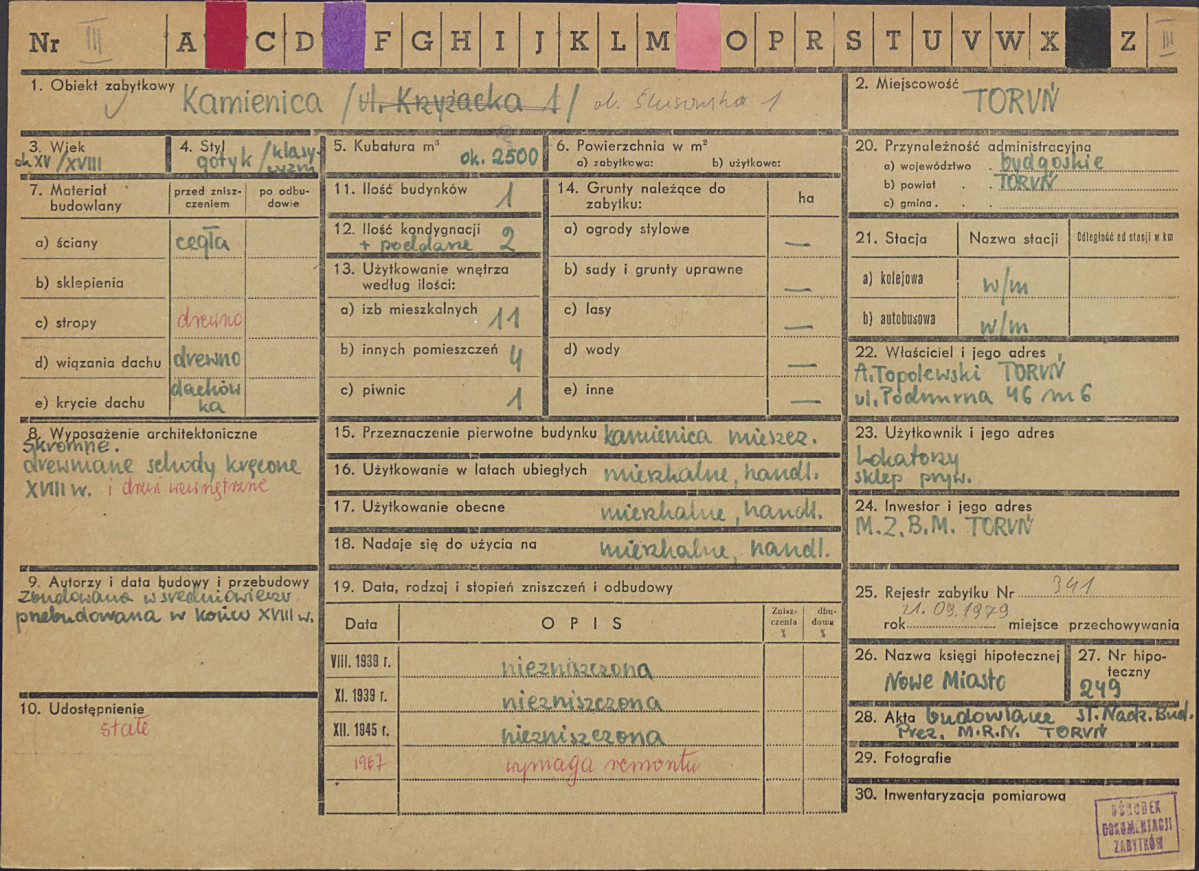 Nr III A C D F G H I J K L M O P R S T U V W X Z III
1. Obiekt zabytkowy Kamienica /ul. Krzyżacka 1/ ob. Ślusarska 1
2. Miejscowość TORUŃ
3. Wiek
ok XV/XVIII
4. Styl gotyk/klasy-
cyzm
5. Kubatura m³
ok. 2500
6. Powierzchnia w m²
a) zabytkowa: b) użytkowa:
7. Materiał
budowlany
przed znisz-
czeniem
po odbu-
dowie
a) ściany cegła
b) sklepienia
c) stropy drewno
d) wiązania dachu drewno
e) krycie dachu dachów
ka
8. Wyposażenie architektoniczne
Skromne.
drewniane schody kręcone
XVIII w. i drzwi wewnętrzne
9. Autorzy i data budowy i przebudowy
Zbudowana w średniowieczu
przebudowana w końcu XVIII w.
10. Udostępnienie
stałe
11. Ilość budynków 1
12. Ilość kondygnacji
+ poddasze 2
13. Użytkowanie wnętrza
według ilości:
a) izb mieszkalnych 11
b) innych pomieszczeń 4
c) piwnic 1
14. Grunty należące do
zabytku:
ha
a) ogrody stylowe —
b) sady i grunty uprawne —
c) lasy —
d) wody —
e) inne —
15. Przeznaczenie pierwotne budynku kamienica mieszcz.
16. Użytkowanie w latach ubiegłych mieszkalne, handl.
17. Użytkowanie obecne mieszkalne, handl.
18. Nadaje się do użycia na mieszkalne, handl.
19. Data, rodzaj i stopień zniszczeń i odbudowy
Data OPIS
Znisz-
czenia
%
dbu-
dowa
%
VIII. 1939 r. niezniszczona
XI. 1939 r. niezniszczona
XII. 1945 r. niezniszczona
1967 wymaga remontu
20. Przynależność administracyjna
a) województwo bydgoskie
b) powiat TORUŃ
c) gmina
21. Stacja Nazwa stacji Odległość od stacji w km
a) kolejowa w/m
b) autobusowa w/m
22. Właściciel i jego adres
A. Topolewski TORUŃ
ul. Podmurna 46 m 6
23. Użytkownik i jego adres
Lokatorzy
sklep pryw.
24. Inwestor i jego adres
M.Z.B.M. TORUŃ
25. Rejestr zabytku Nr 341
21.09.1979
rok miejsce przechowywania
26. Nazwa księgi hipotecznej
Nowe Miasto
27. Nr hipo-
teczny
249
28. Akta budowlane St. Nadz. Bud.
Prez. M.R.N. TORUŃ
29. Fotografie
30. Inwentaryzacja pomiarowa
OŚRODEK
DOKUMENTACJI
ZABYTKÓW